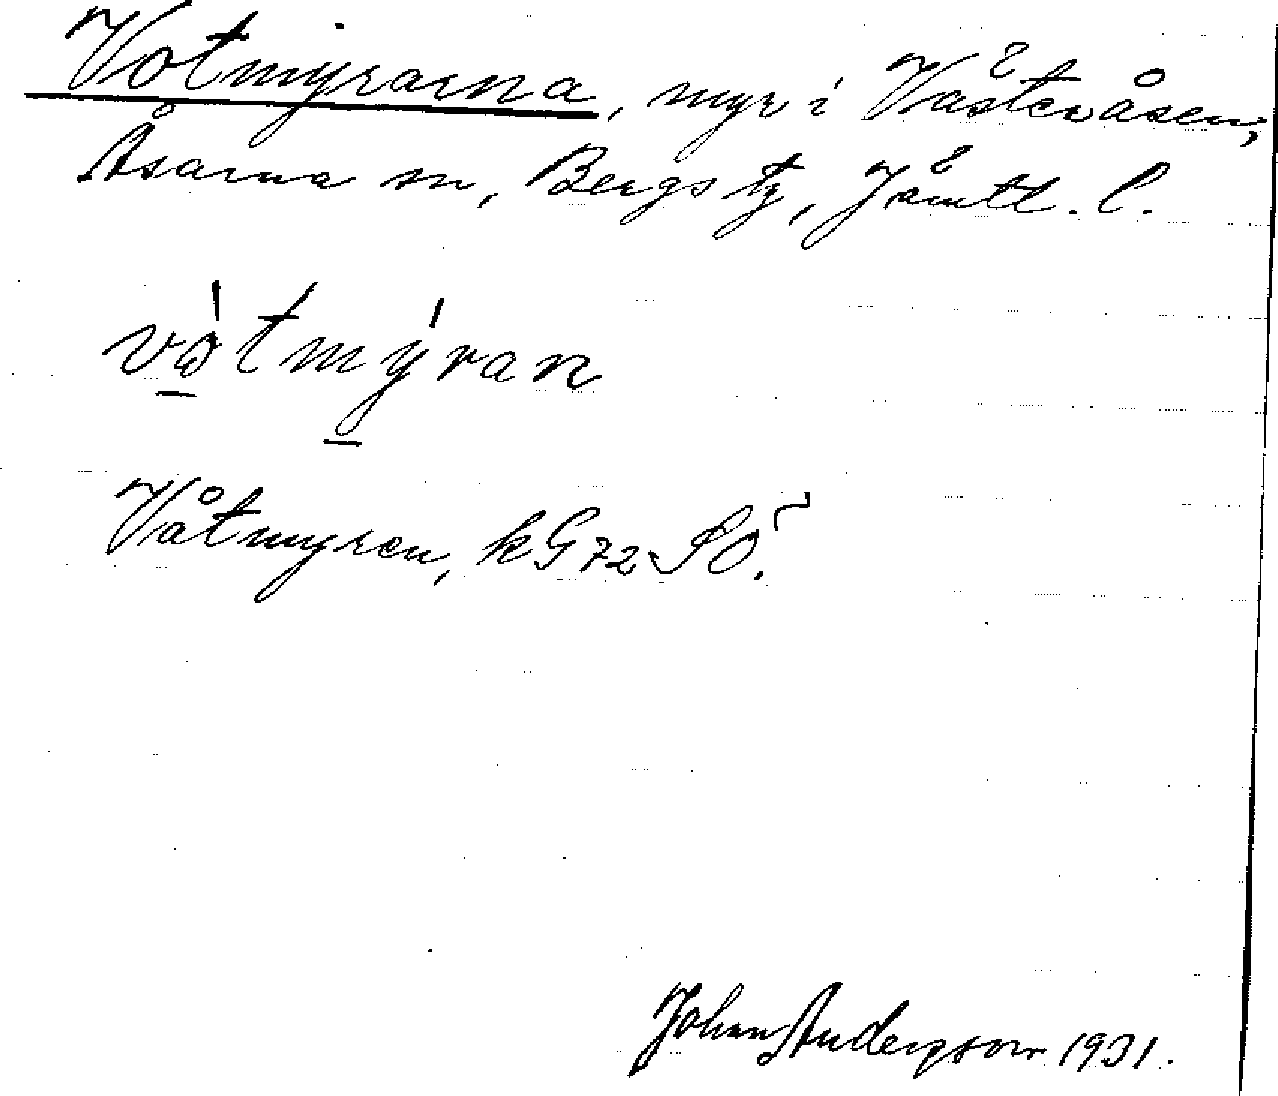 Votmyrarna, myr i Västeråsen,
Åsarna sn, Bergs tg, Jämtl. l.
vòtmýran
Våtmyren, kG72SÖ.
Johan Anderson 1931.